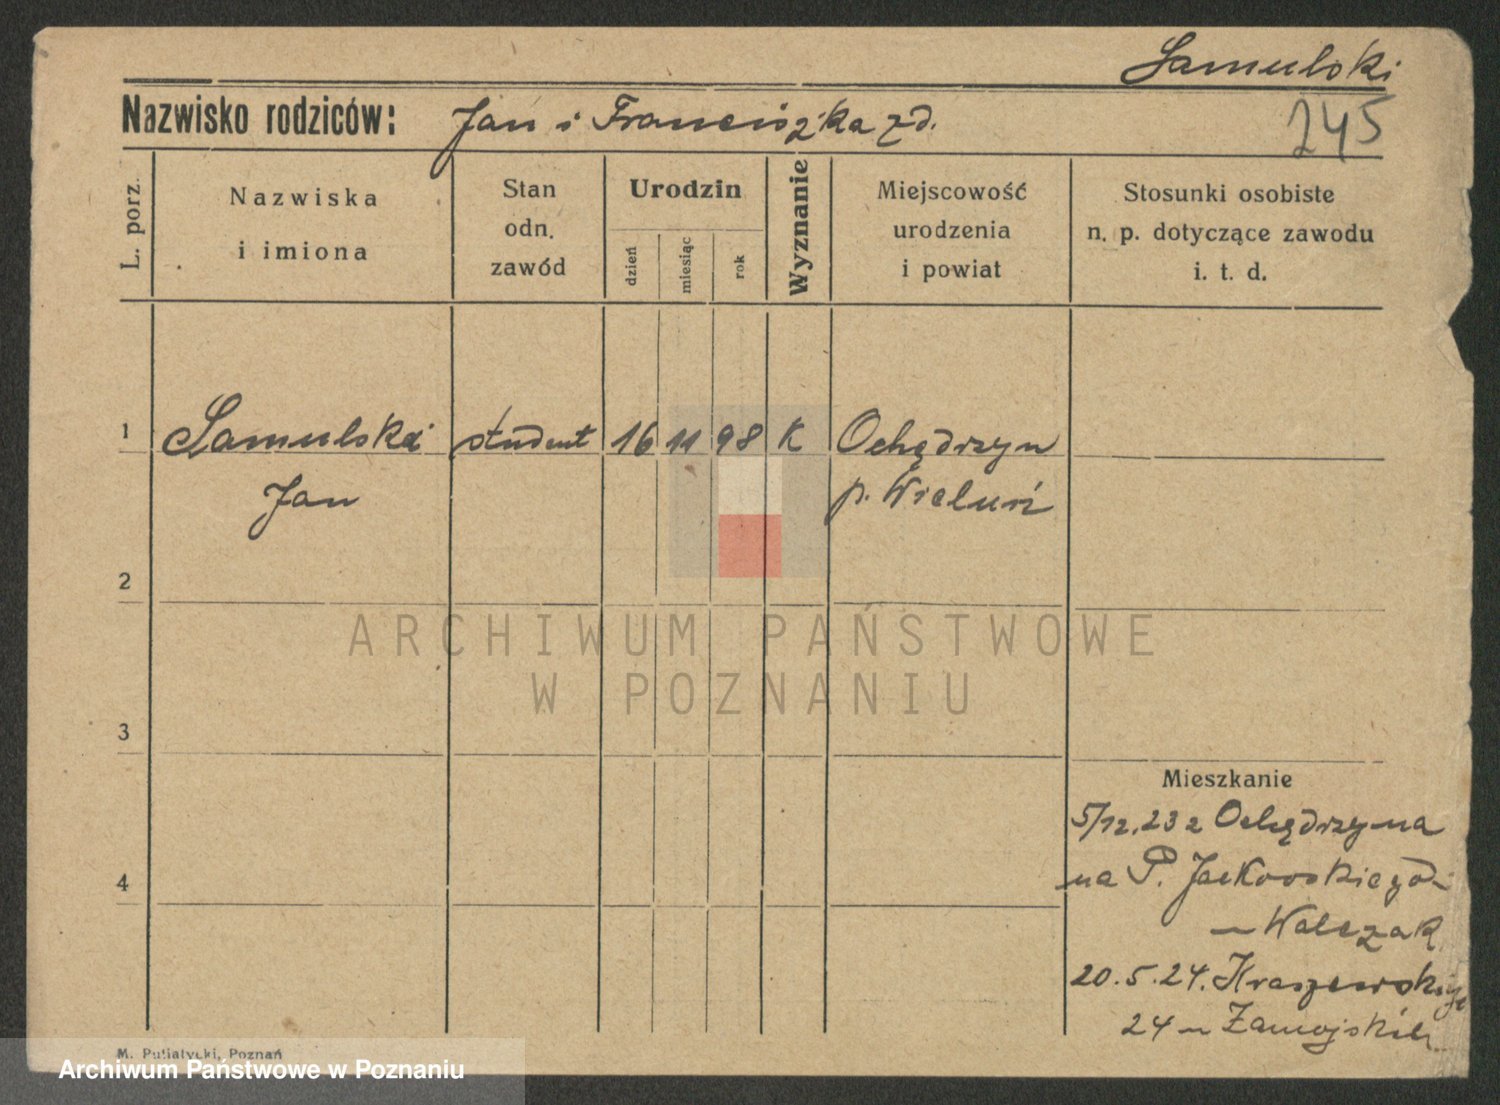 Samulski
Nazwisko rodziców: Jan i Franciszka zd.
245
L. porz.
Nazwiska
i imiona
Stan
odn.
zawód
Urodzin
dzień
miesiąc
rok
Wyznanie
Miejscowość
urodzenia
i powiat
Stosunki osobiste
n. p. dotyczące zawodu
i. t. d.
1 Samulski student 16 11 98 K Ochędrzyn
Jan p. Wieluń
2
ARCHIWUM PAŃSTWOWE
W POZNANIU
3
Mieszkanie
5/12.23 z Ochędrzyna
4
na P. Jackowskiego
Walczak
20.5.24. Kraszewskiego
24 Zamojski
M. Putiatycki, Poznań
Archiwum Państwowe w Poznaniu